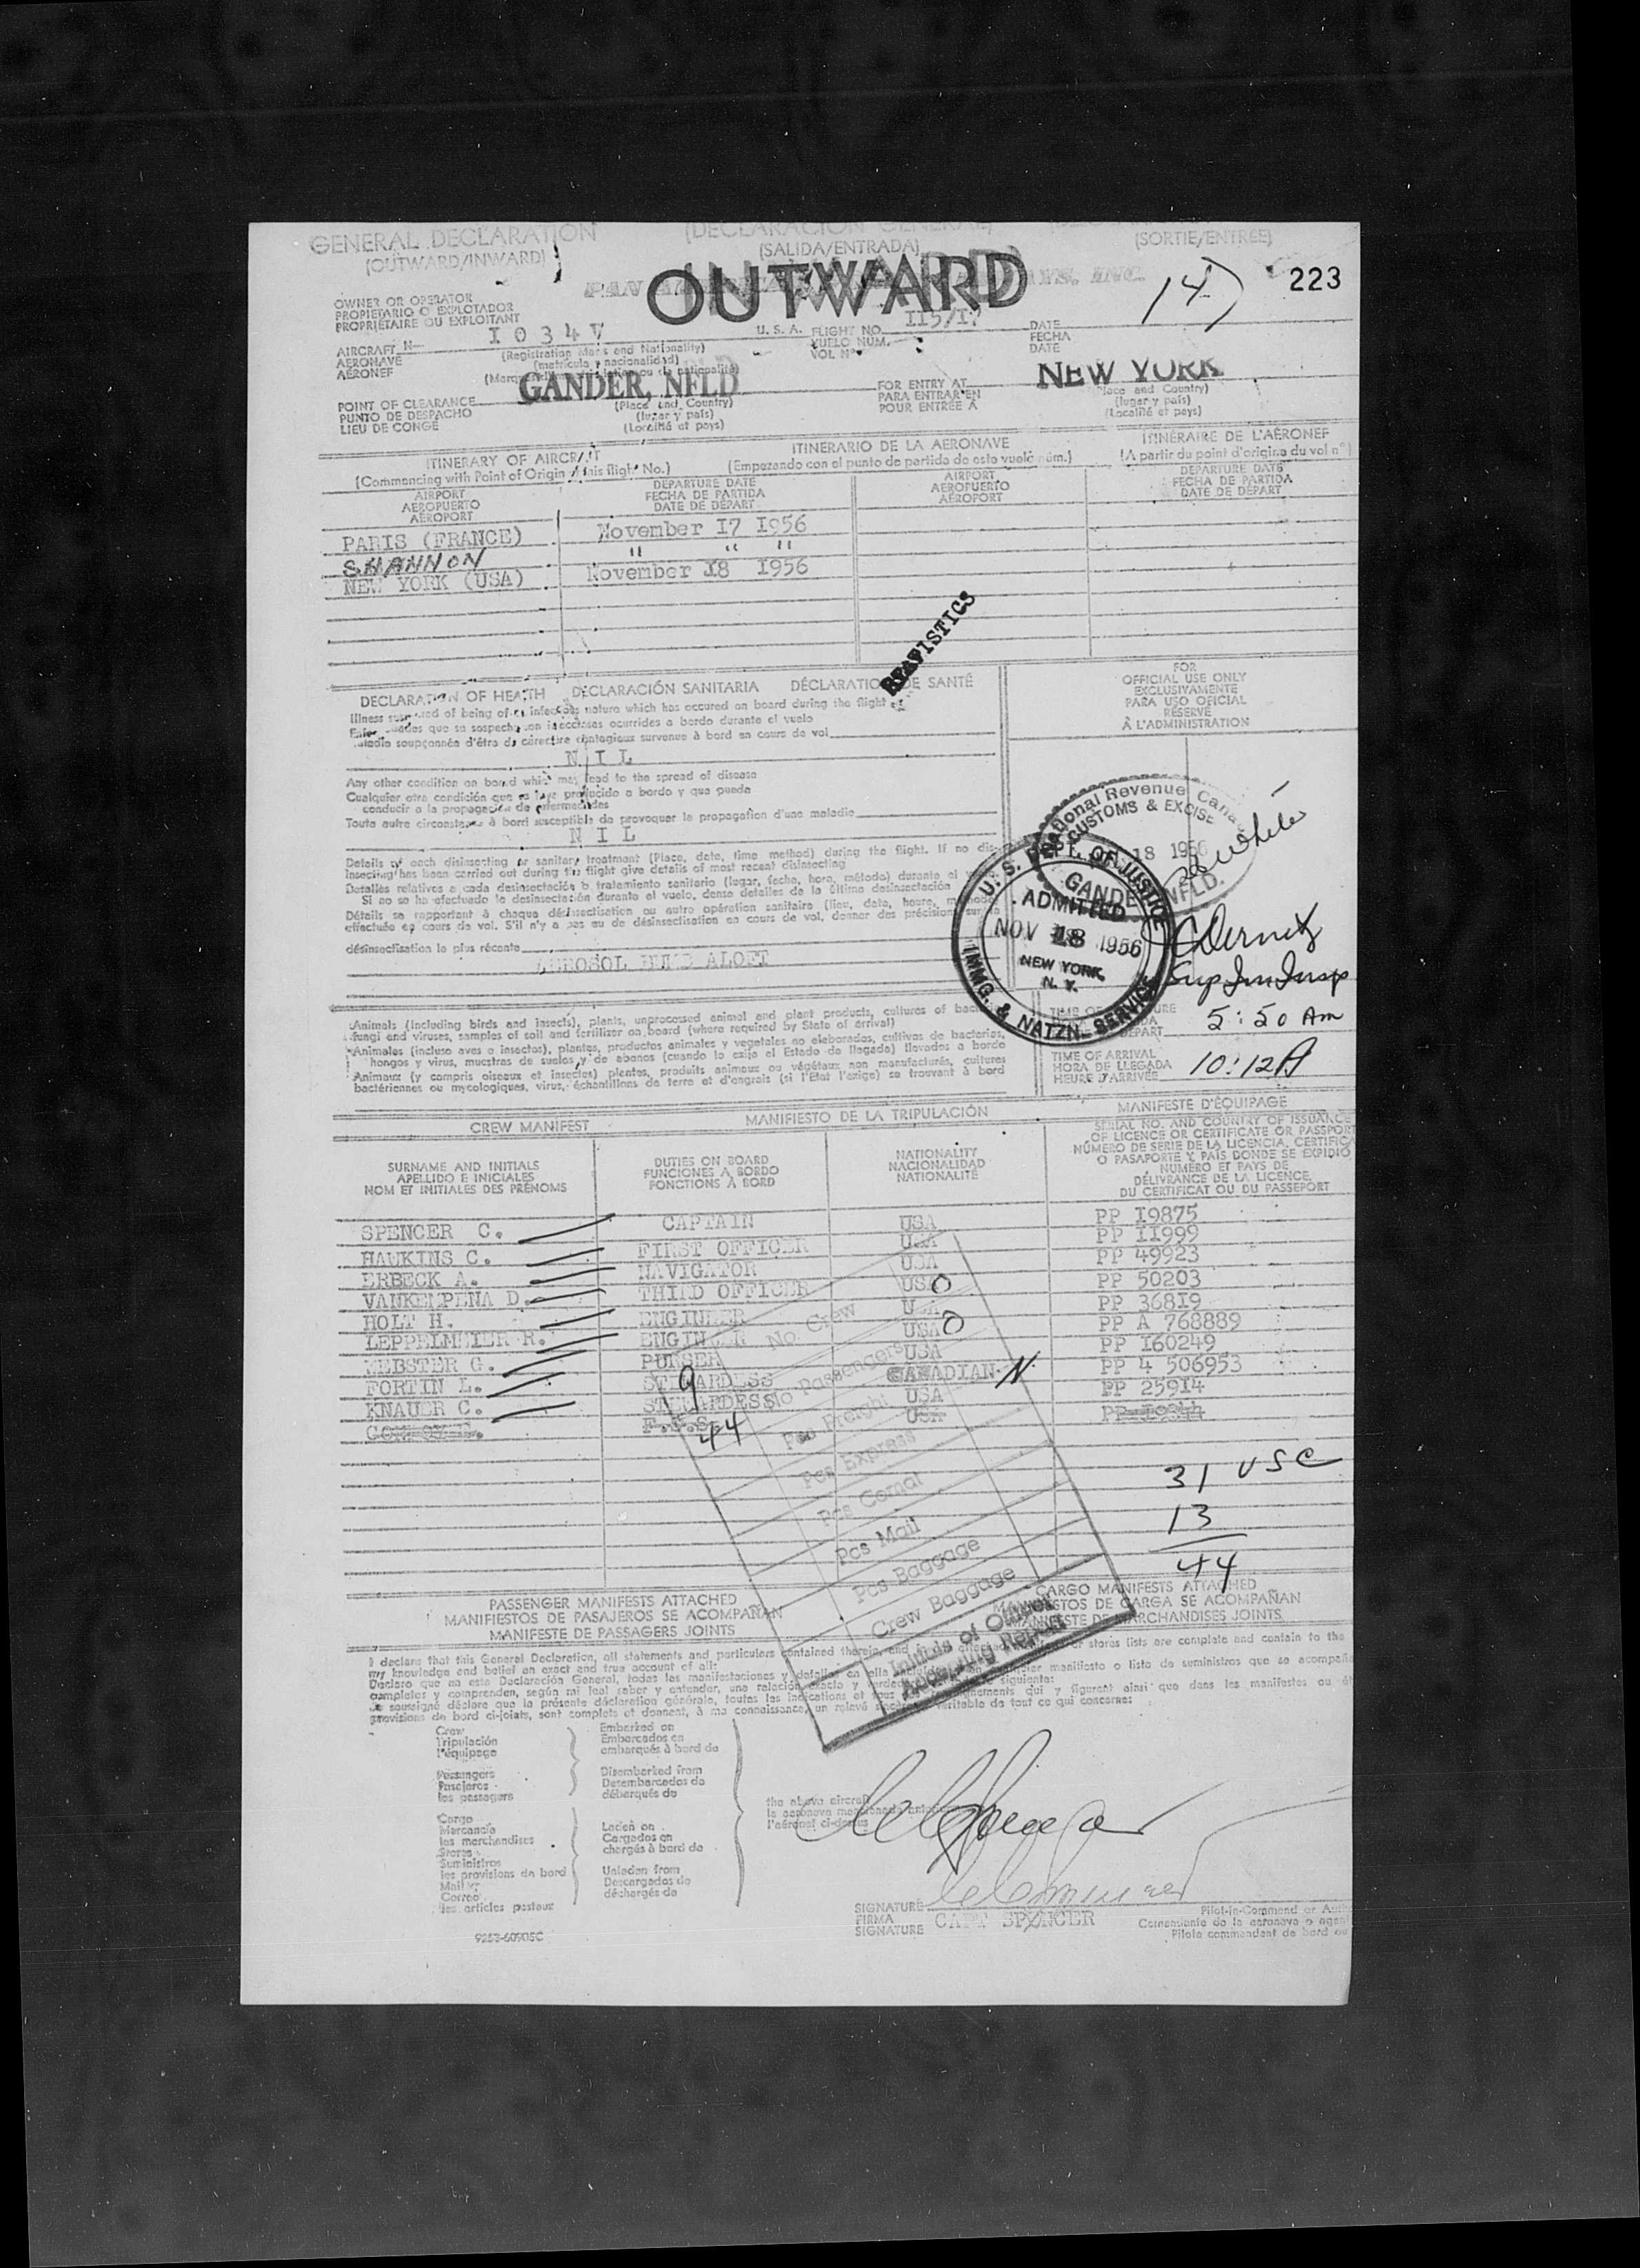 GENERAL DECLARATION
(OUTWARD/INWARD)
(DECLARACIÓN GENERAL)
(SALIDA/ENTRADA)
(SORTIE/ENTRÉE)
OUTWARD
14)
223
OWNER OR OPERATOR
PROPIETARIO O EXPLOTADOR
PROPRIÉTAIRE OU EXPLOITANT
PAN
AIRCRAFT N-
AERONAVE
AÉRONEF
I034V
(Registration Marks and Nationality)
(matrícula y nacionalidad)
U. S. A.
FLIGHT NO.
VUELO NÚM.
VOL Nº
II5/I7
DATE
FECHA
DATE
POINT OF CLEARANCE
PUNTO DE DESPACHO
LIEU DE CONGÉ
GANDER, NFLD
(Place and Country)
(lugar y país)
(Localité et pays)
FOR ENTRY AT
PARA ENTRAR EN
POUR ENTRÉE À
NEW YORK
(Place and Country)
(lugar y país)
(Localité et pays)
ITINERARY OF AIRCRAFT
(Commencing with Point of Origin of this flight No.)
ITINERARIO DE LA AERONAVE
(Empezando con el punto de partida de este vuelo núm.)
ITINÉRAIRE DE L'AÉRONEF
(A partir du point d'origine du vol n°)
AIRPORT
AEROPUERTO
AÉROPORT
DEPARTURE DATE
FECHA DE PARTIDA
DATE DE DÉPART
AIRPORT
AEROPUERTO
AÉROPORT
DEPARTURE DATE
FECHA DE PARTIDA
DATE DE DÉPART
PARIS (FRANCE) November I7 I956
SHANNON " " "
NEW YORK (USA) November I8 I956
STATISTICS
DECLARATION OF HEALTH DECLARACIÓN SANITARIA DÉCLARATION DE SANTÉ
Illness suspected of being of an infectious nature which has occured on board during the flight
Enfermedades que se sospecha son infecciosas ocurridas a bordo durante el vuelo
Maladie soupçonnée d'être de caractère contagieux survenue à bord en cours de vol
N I L
Any other condition on board which may lead to the spread of disease
Cualquier otra condición que se haya producido a bordo y que pueda
conducir a la propagación de enfermedades
Toute autre circonstance à bord susceptible de provoquer la propagation d'une maladie
N I L
Details of each disinsecting or sanitary treatment (Place, date, time method) during the flight. If no dis-
insecting has been carried out during the flight give details of most recent disinsecting
Detalles relativos a cada desinsectación o tratamiento sanitario (lugar, fecha, hora, método), durante el
Si no se ha efectuado la desinsectación durante el vuelo, dense detalles de la última desinsectación
Détails se rapportant à chaque désinsectisation ou autre opération sanitaire (lieu, date, heure,
effectuée en cours de vol. S'il n'y a pas eu de désinsectisation en cours de vol, donner des précisions sur la
désinsectisation la plus récente
AEROSOL BOMB ALOFT
FOR
OFFICIAL USE ONLY
EXCLUSIVAMENTE
PARA USO OFICIAL
RÉSERVÉ
À L'ADMINISTRATION
National Revenue Canada
CUSTOMS & EXCISE
18 1956
GANDER NFLD.
U. S. DEPT. OF JUSTICE
ADMITTED
NOV 18 1956
NEW YORK,
N. Y.
IMMG. & NATZN. SERVICE
Sup Imm Insp
5:50 Am
TIME OF ARRIVAL
HORA DE LLEGADA
HEURE D'ARRIVÉE
10:12A
Animals (including birds and insects), plants, unprocessed animal and plant products, cultures of
fungi and viruses, samples of soil and fertilizer on board (where required by State of arrival)
Animales (incluso aves e insectos), plantas, productos animales y vegetales no elaborados, cultivos de bacterias,
hongos y virus, muestras de suelos y de abonos (cuando lo exija el Estado de llegada) llevados a bordo
Animaux (y compris oiseaux et insectes) plantes, produits animaux ou végétaux non manufacturés, cultures
bactériennes ou mycologiques, virus, échantillons de terre et d'engrais (si l'État l'exige) se trouvant à bord
CREW MANIFEST
MANIFIESTO DE LA TRIPULACIÓN
MANIFESTE D'ÉQUIPAGE
SURNAME AND INITIALS
APELLIDO E INICIALES
NOM ET INITIALES DES PRÉNOMS
DUTIES ON BOARD
FUNCIONES A BORDO
FONCTIONS À BORD
NATIONALITY
NACIONALIDAD
NATIONALITÉ
SERIAL NO. AND COUNTRY OF ISSUANCE
OF LICENCE OR CERTIFICATE OR PASSPORT
NÚMERO DE SERIE DE LA LICENCIA, CERTIFICA
O PASAPORTE Y PAÍS DONDE SE EXPIDIÓ
NUMÉRO ET PAYS DE
DÉLIVRANCE DE LA LICENCE,
DU CERTIFICAT OU DU PASSEPORT
SPENCER C. CAPTAIN USA PP I9875
HAWKINS C. FIRST OFFICER USA PP II999
ERBECK A. NAVIGATOR USA PP 49923
VANKEMPENA D. THIRD OFFICER USA PP 50203
HOLT H. ENGINEER USA PP 368I9
LEPPELMEIER R. ENGINEER USA PP A 768889
WEBSTER G. PURSER USA PP I60249
FORTIN L. STEWARDESS CANADIAN N PP 4 506953
KNAUER C. STEWARDESS USA PP 259I4
F.S.S. USA
9
44
No. Crew
No Passengers
Pcs Freight
Pcs Express
Pcs Comat
Pcs Mail
Pcs Baggage
Crew Baggage
Initials of Officer
Accepting Report
31 USC
13
44
PASSENGER MANIFESTS ATTACHED
MANIFIESTOS DE PASAJEROS SE ACOMPAÑAN
MANIFESTE DE PASSAGERS JOINTS
CARGO MANIFESTS ATTACHED
MANIFIESTOS DE CARGA SE ACOMPAÑAN
MANIFESTE DE MARCHANDISES JOINTS
I declare that this General Declaration, all statements and particulars contained therein, and in stores lists are complete and contain to the
my knowledge and belief an exact and true account of all:
Declaro que en esta Declaración General, todas las manifestaciones y detalles en ella manifiesto o lista de suministros que se acompaña
completos y comprenden, según mi leal saber y entender, una relación exacta y verdadera siguientes:
Je soussigné déclare que la présente déclaration générale, toutes les indications et tous qui y figurent ainsi que dans les manifestes ou
provisions de bord ci-joints, sont complets et donnent, à ma connaissance, un relevé véritable de tout ce qui concerne:
Crew
Tripulación
l'équipage
Embarked on
Embarcados en
embarqués à bord de
Passengers
Pasajeros
les passagers
Disembarked from
Desembarcados de
débarqués de
the above aircraft
la aeronave mencionada
l'aéronef ci-dessus
Cargo
Mercancía
les marchandises
Stores
Suministros
les provisions de bord
Mail
Correo
les articles postaux
Laden on
Cargados en
chargés à bord de
Unladen from
Descargados de
déchargés de
SIGNATURE
FIRMA
SIGNATURE
CAPT SPENCER
Pilot-in-Command or
Comandante de la aeronave o
Pilote commandant de bord ou
9253-60905C